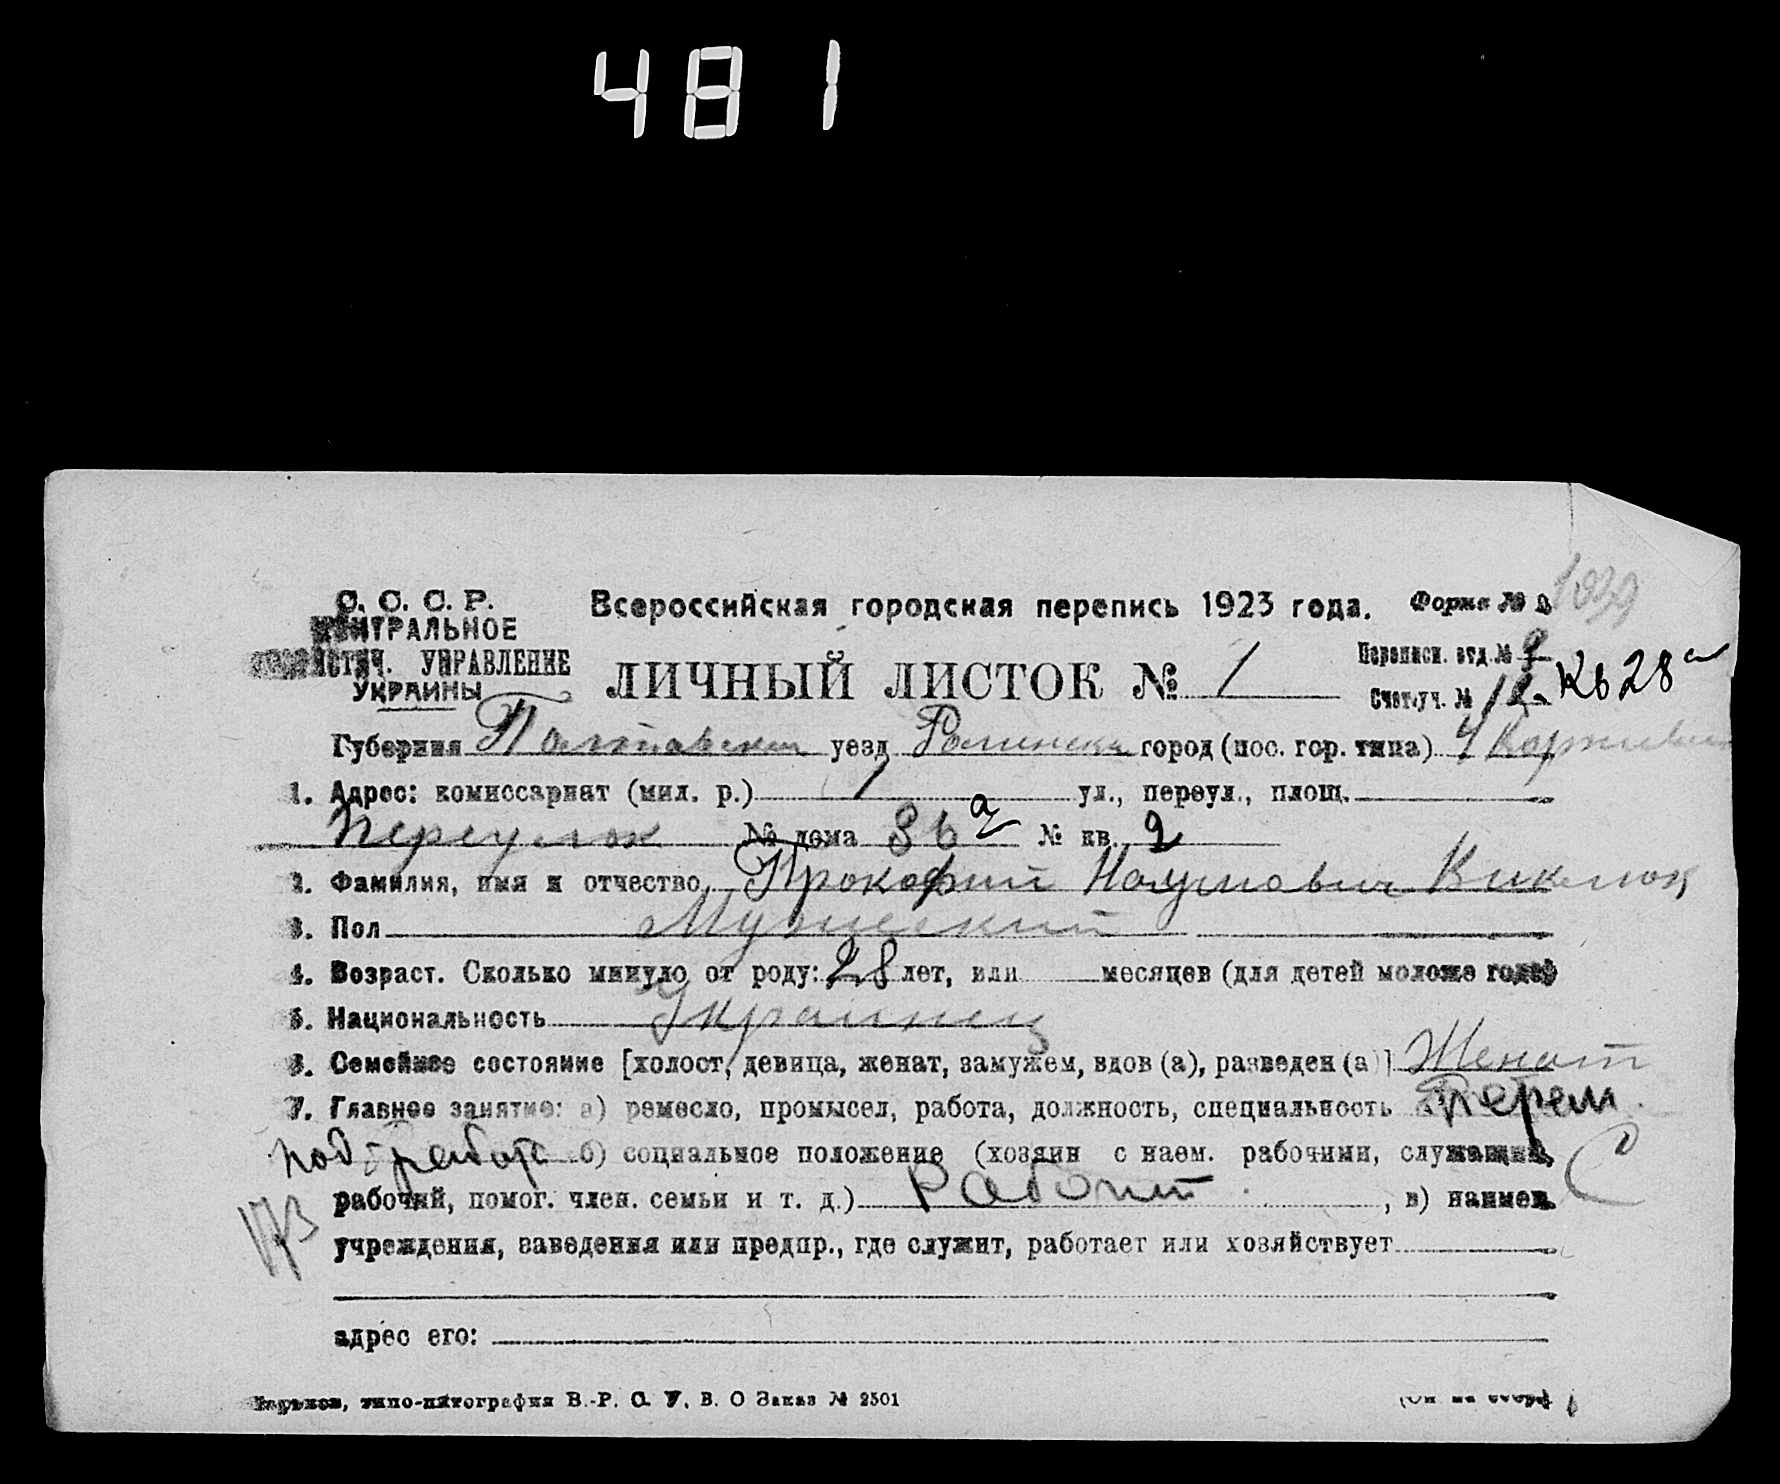 481
С. С. С. Р.
ЦЕНТРАЛЬНОЕ
СТАТИСТИЧ. УПРАВЛЕНИЕ
УКРАИНЫ
Всероссийская городская перепись 1923 года.
Форма №
1039
ЛИЧНЫЙ ЛИСТОК № 1
Переписн. отд. № 9
Счетн. уч. № 12 Кв 28а
Губерния Полтавская уезд Роменски город (пос. гор. типа)
1. Адрес: комиссариат (мил. р.) 1 ул., переул., площ.
Переулок № дома 36 а № кв. 2
2. Фамилия, имя и отчество Прокофий Наумович
3. Пол Мужеский
4. Возраст. Сколько минуло от роду: 28 лет, или месяцев (для детей моложе года)
5. Национальность Украинец
6. Семейное состояние [холост, девица, женат, замужем, вдов (а), разведен (а)] Женат
7. Главное занятие: а) ремесло, промысел, работа, должность, специальность
б) социальное положение (хозяин с наем. рабочими, служащий,
рабочий, помог. член. семьи и т. д.) , в) наимен.
173
учреждения, заведения или предпр., где служит, работает или хозяйствует
адрес его:
Харьков, типо-литография В.-Р. С. У. В. О Заказ № 2501